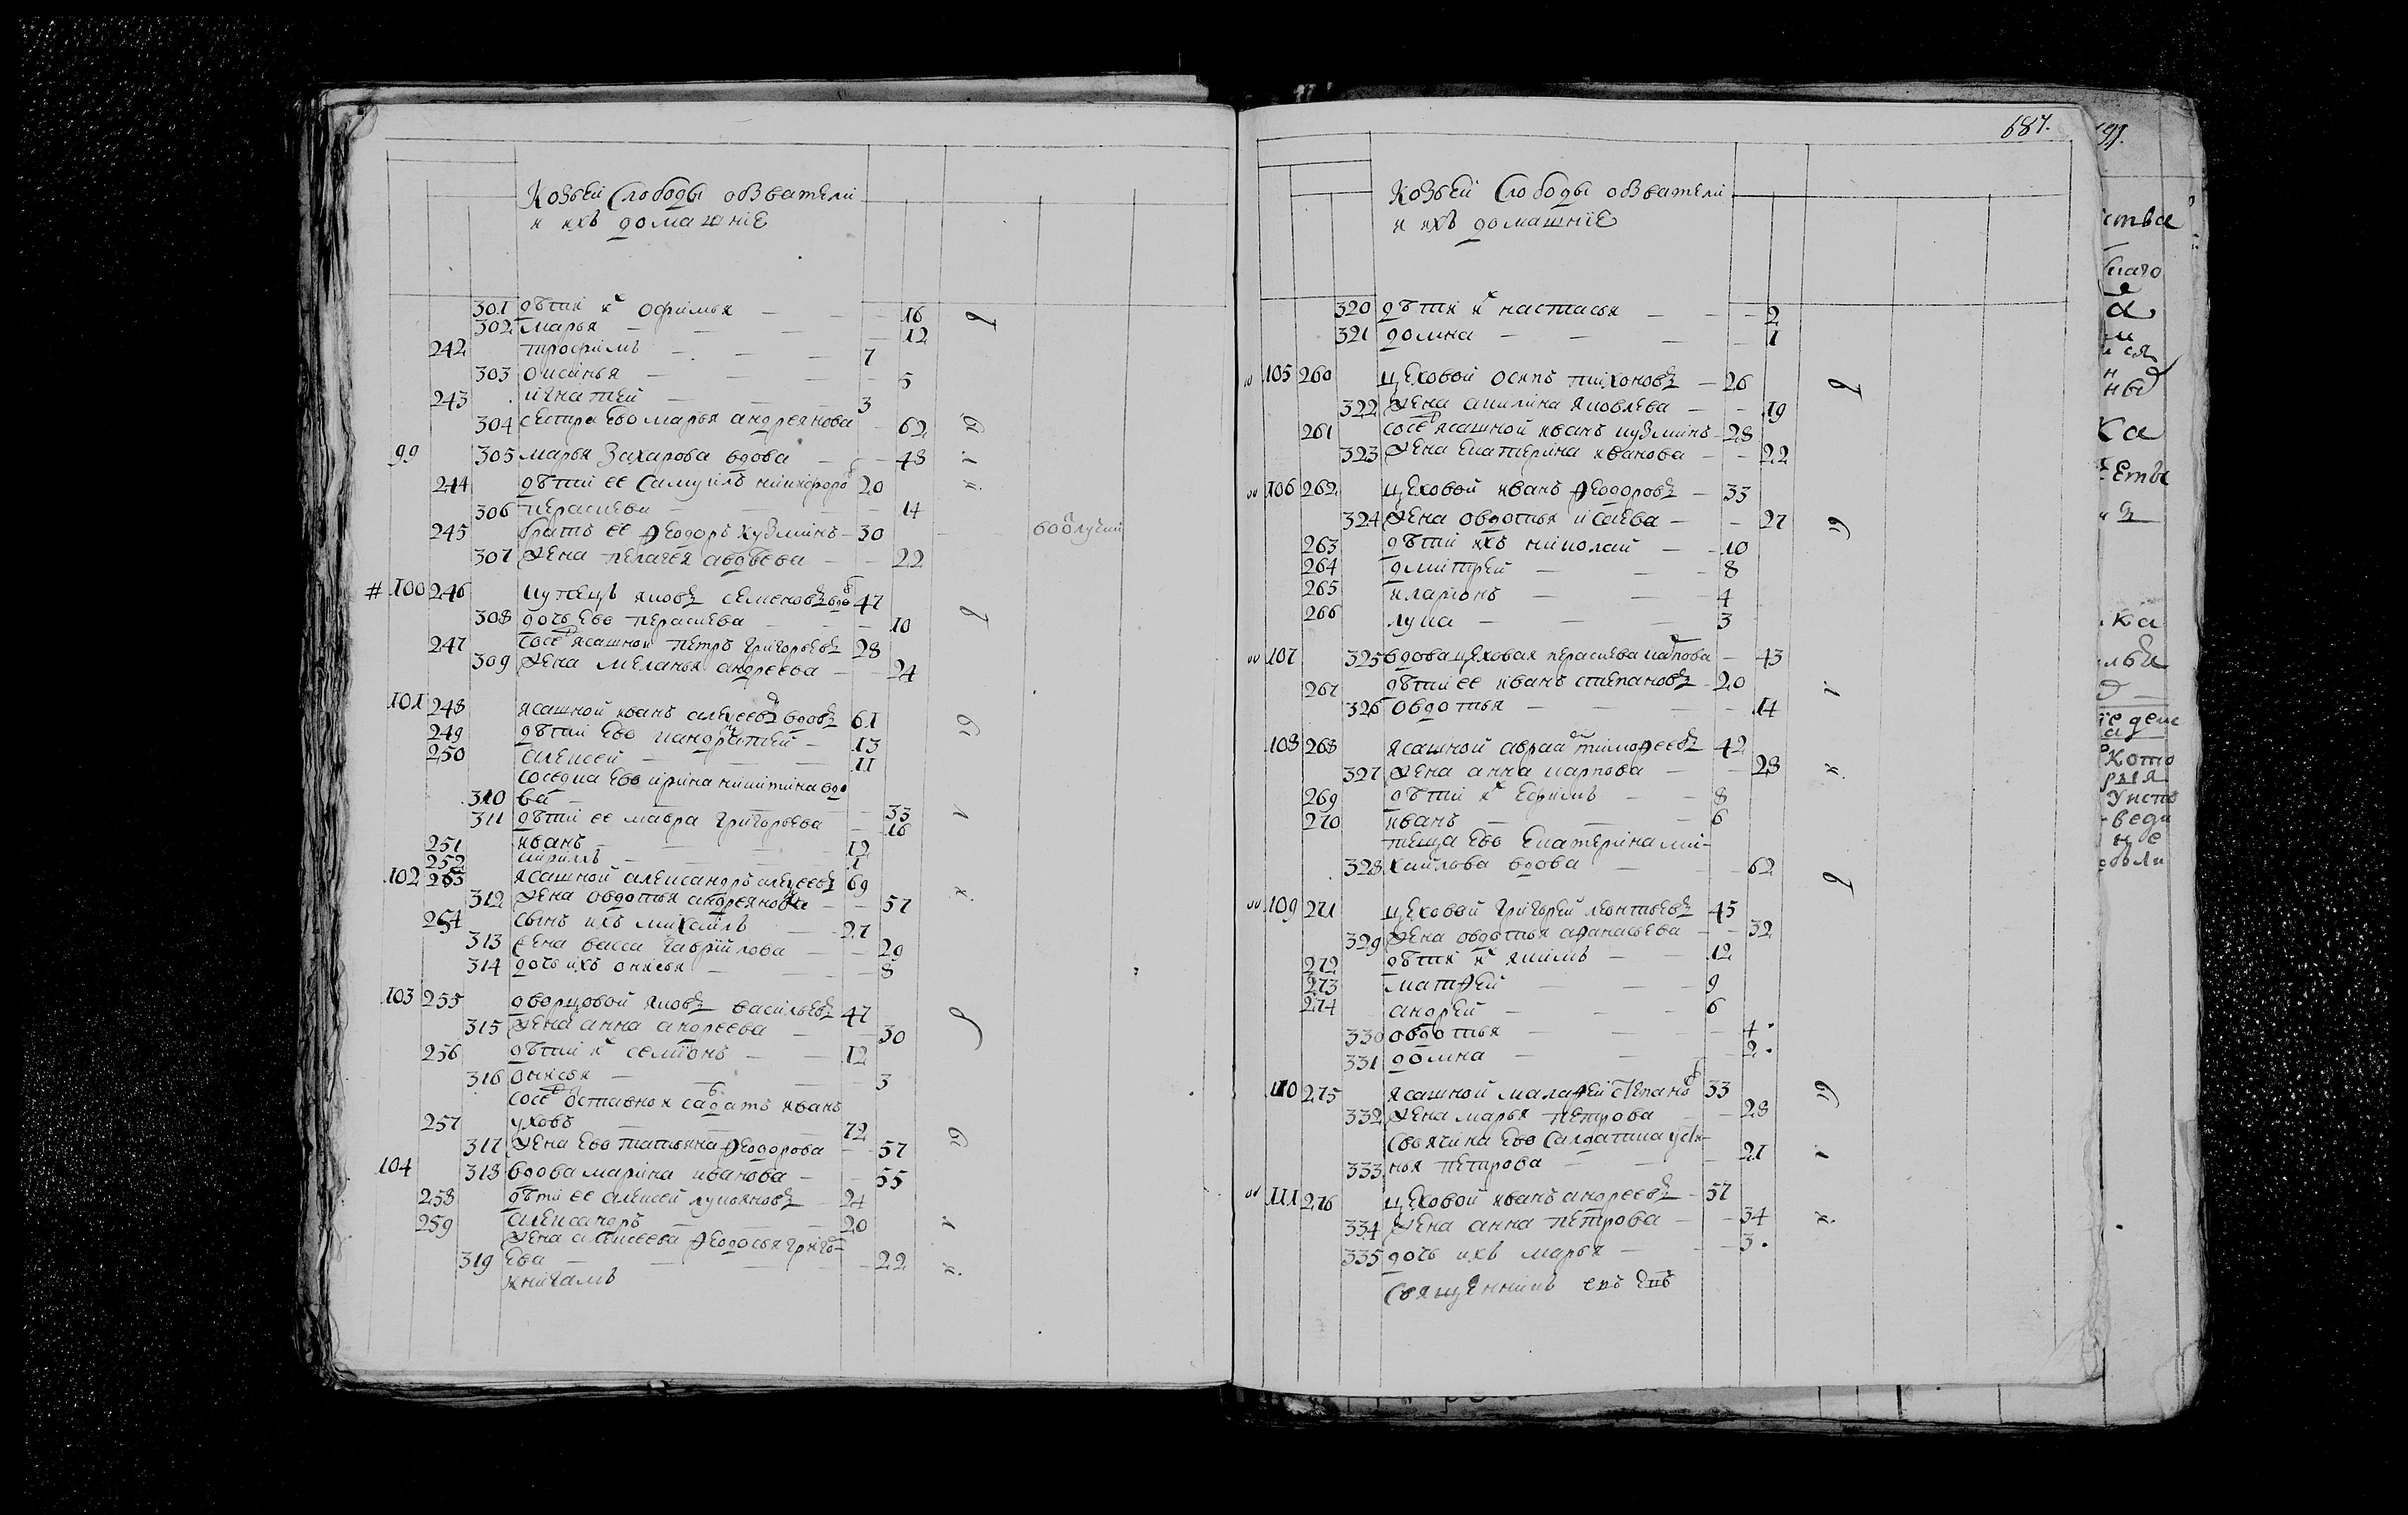 Козьей Слободы обыватели
и ихъ домашнїе
301 дѣти их Офимья 16
302 Марья 12
242 Трофимъ 7
303 Оксинья 5
243 Игнатей 3
304 сестра Ево марья андреянова 62
99 305 марья Захарова вдова 48
244 дѣти ее Самуилъ никифоров 20
306 Пераскева 14
245 братъ ее Ѳеодоръ Кузминъ 30
307 Жена пелагея авдѣева 22
# 100 246 купецъ яковъ семеновъ вдов 47
308 дочь Ево Пераскева 10
247 сосед ясашнои Петръ Григорьевъ 28
309 Жена меланья андреева 24
101 248 ясашной иванъ алексеевъ вдовъ 61
249 дѣти Ево кандратей 13
250 алексей 11
соседка Ево ирина никитина вдо
310 ва 33
311 дѣти ее мавра Григорьева 16
251 иванъ 12
252 кирилъ 1
102 253 ясашной александръ алексеевъ 69
312 Жена овдотья андреянова 57
254 сынъ ихъ михаилъ 27
313 Жена васса Гаврїилова 29
314 дочь ихъ онисья 8
103 255 дворцовой яковъ васильевъ 47
315 Жена анна андреева 30
256 дѣти их семїонъ 12
316 онисья 3
сосед отставнои садатъ иванъ
257 уховъ 72
317 Жена Ево татьяна Ѳеодорова 57
104 318 вдова марина иванова 55
258 дѣти ее алексей лукьяновъ 24
259 александръ 20
Жена алексеева Ѳеодосья григо-
319 Ева 22
книгамъ
687.
Козьей Слободы обыватели
и ихъ домашнїе
320 дѣти их настасья 2
321 домна 1
105 260 цеховой осипъ тихоновъ 26
322 Жена акилина яковлева 19
261 сосед ясашной иванъ кузминъ 28
323 Жена Екатерина иванова 22
106 262 цеховой иванъ Ѳеодоровъ 33
324 Жена овдотья исаева 27
263 дѣти ихъ николай 10
264 дмитрей 8
265 иларионъ 4
266 лука 3
107 325 вдова цеховая пераскева карпова 43
267 дѣти ее иванъ степановъ 20
326 овдотья 14
108 268 ясашной авраам тимоѳеевъ 42
327 Жена анна карпова 28
269 дѣти их Ефимъ 8
270 иванъ 6
теща Ево Екатерина ми-
328 хайлова вдова 62
109 271 цеховой григорей леонтьевъ 45
329 Жена овдотья аѳанасьева 32
272 дѣти их якимъ 12
273 матѳей 9
274 андрей 6
330 овдотья 4
331 домна 2
110 275 ясашной малаѳей степанов 33
332 Жена марья петрова 28
своячина Ево Салдатка усти-
333 нья петрова 27
111 276 цеховой иванъ андреевъ 57
334 Жена анна петрова 34
335 дочь ихъ марья 3
Священникъ